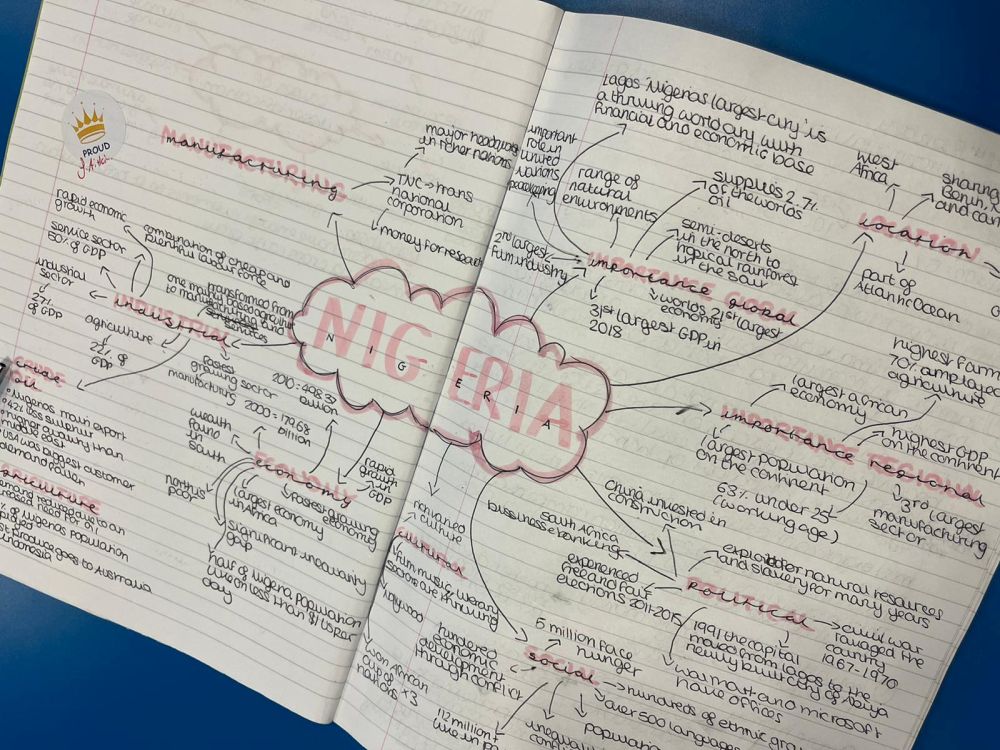 PROUD
MANUFACTURING
manufacturing
major headquarters
in richer nations
TNC → trans
national
corporation
money for research
rapid economic
growth
service sector
50% of GDP
combination of cheap and
plentiful labour force
industrial
sector
27%
of GDP
INDUSTRIAL
industrial
one mainly based agriculture
transformed from
to manufacturing and
services
agriculture
22% of
GDP
fastest
growing sector
manufacturing
crude
oil
Nigerias main export
42% less sulphur
higher quality than
middle east
USA was biggest customer
demand fallen
agriculture
demand reduced due to an
increased need for oil
% of Nigerias population
employed
most produce goes to Australia
Indonesia
2010 = 498.37
billion
2000 = 179.68
billion
wealth
found
in
south
north is
poor
ECONOMY
economy
rapid
growth
in
GDP
largest economy
in Africa
fastest growing
economy
significant inequality
gap
half of nigeria population
live on less than $1 US per
day
NIGERIA
N I G E R I A
Lagos 'Nigerias largest city' is
a thriving world city with
financial and economic base
important
role in
united
nations
peacekeeping
range of
natural
environments
supplies 2.7%
of the worlds
oil
semi-deserts
in the north to
tropical rainforest
in the south
2nd largest
film industry
IMPORTANCE GLOBAL
importance global
31st largest GDP in
2018
worlds 21st largest
economy
west
Africa
sharing
Benin,
and
LOCATION
location
part of
Atlantic Ocean
highest farm
70% employed
agriculture
largest african
economy
highest GDP
on the continent
IMPORTANCE REGIONAL
importance regional
largest population
on the continent
63% under 25
(working age)
3rd largest
manufacturing
sector
China invested in
construction
South Africa
business + banking
experienced
free and fair
elections 2011-2015
exploited for natural resources
and slavery for many years
POLITICAL
political
civil war
ravaged the
country
1967-1970
1991 the capital
moved from Lagos to the
newly built city of Abuja
walmart and microsoft
have offices
rich varied
culture
CULTURAL
cultural
film music literary
sector are thriving
nollywood
won African
cup of nations
×3
5 million face
hunger
hindered
economic
development
through conflict
SOCIAL
social
hundreds of ethnic
over 500 languages
112 million +
live in
unequal
population